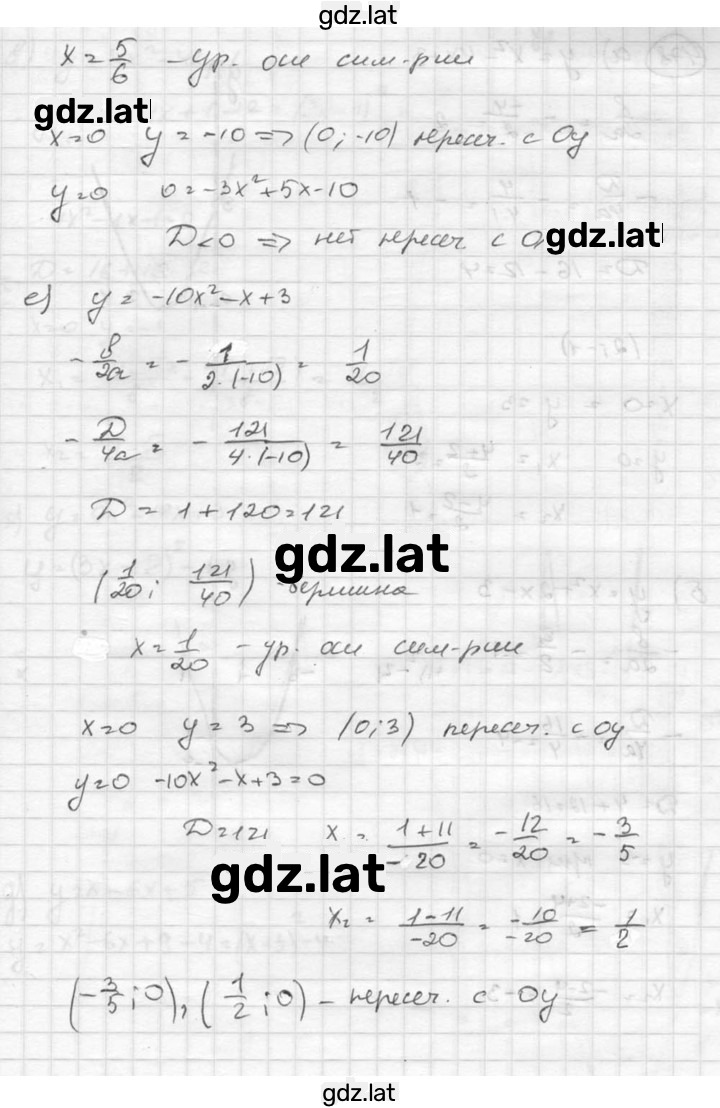 gdz.lat
x = 5/6 – ур. оси сим-рии
gdz.lat
x=0 y = -10 => (0; -10) пересеч. с Oy
y=0 0 = -3x²+5x-10
D<0 => нет пересеч с O
gdz.lat
е) y = -10x²-x+3
-в/2a = -1/2·(-10) = 1/20
-D/4a = -121/4·(-10) = 121/40
D = 1+120=121
gdz.lat
(1/20; 121/40) -вершина
x = 1/20 – ур. оси сим-рии
x=0 y = 3 => (0;3) пересеч. с Oy
y=0 -10x²-x+3=0
D=121 x = 1+11/-20 = -12/20 = -3/5
gdz.lat
x₂ = 1-11/-20 = -10/-20 = 1/2
(-3/5;0), (1/2;0) – пересеч. с Oy
gdz.lat